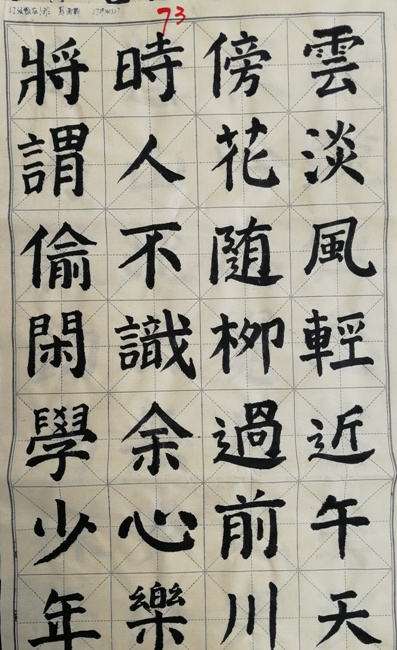 73
雲淡風輕近午天
傍花随柳過前川
時人不識余心樂
將謂偷閑學少年